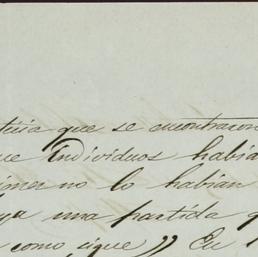 ticia que se encontraron
ue Individuos había
no lo habían
ya una partida q
como sigue)) En